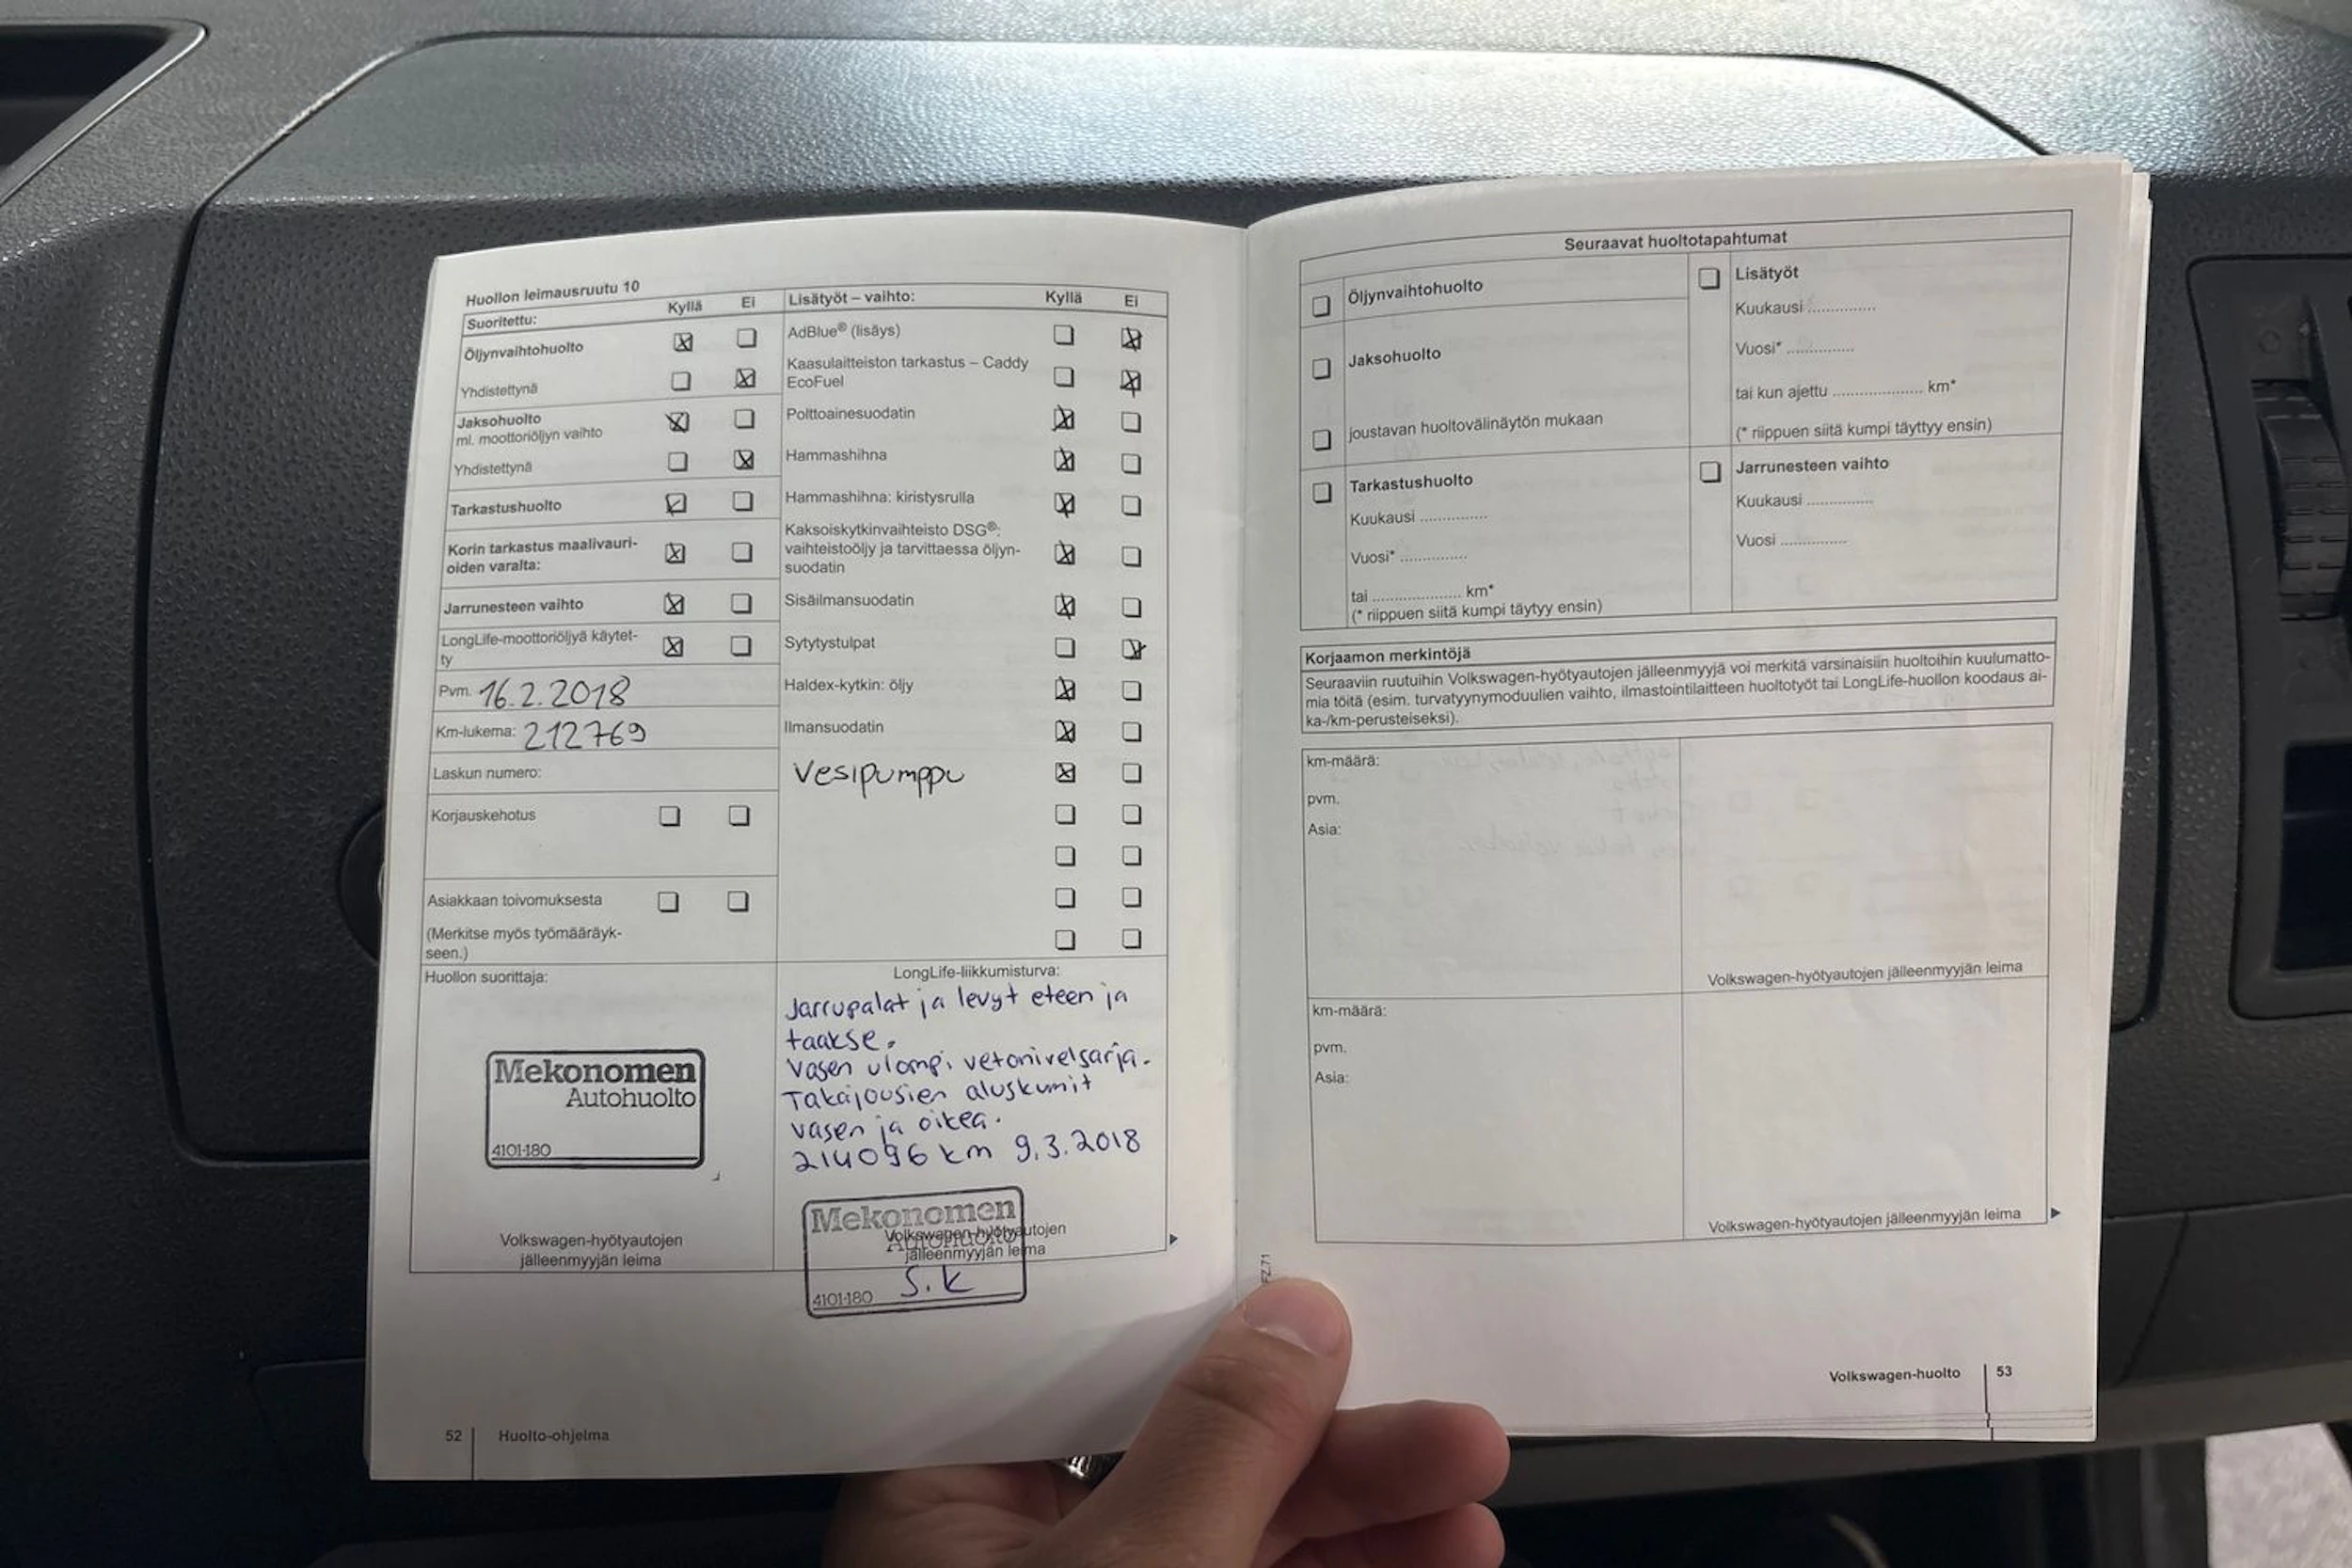 Huollon leimausruutu 10
Suoritettu: Kyllä Ei
Öljynvaihtohuolto
Yhdistettynä
Jaksohuolto
ml. moottoriöljyn vaihto
Yhdistettynä
Tarkastushuolto
Korin tarkastus maalivauri-
oiden varalta:
Jarrunesteen vaihto
LongLife-moottoriöljyä käytet-
ty
Pvm. 16.2.2018
Km-lukema: 212769
Laskun numero:
Korjauskehotus
Asiakkaan toivomuksesta
(Merkitse myös työmääräyk-
seen.)
Huollon suorittaja:
Mekonomen
Autohuolto
4101-180
Volkswagen-hyötyautojen
jälleenmyyjän leima
Lisätyöt – vaihto: Kyllä Ei
AdBlue® (lisäys)
Kaasulaitteiston tarkastus – Caddy
EcoFuel
Polttoainesuodatin
Hammashihna
Hammashihna: kiristysrulla
Kaksoiskytkinvaihteisto DSG®:
vaihteistoöljy ja tarvittaessa öljyn-
suodatin
Sisäilmansuodatin
Sytytystulpat
Haldex-kytkin: öljy
Ilmansuodatin
Vesipumppu
LongLife-liikkumisturva:
Jarrupalat ja levyt eteen ja
taakse.
Vasen ulompi vetonivelsarja.
Takajousien aluskumit
vasen ja oikea.
214096 km 9.3.2018
Mekonomen
Autohuolto
Volkswagen-hyötyautojen
jälleenmyyjän leima
4101-180 S.K
52 Huolto-ohjelma
Seuraavat huoltotapahtumat
Öljynvaihtohuolto
Jaksohuolto
joustavan huoltovälinäytön mukaan
Tarkastushuolto
Kuukausi ...............
Vuosi* ...............
tai .................... km*
(* riippuen siitä kumpi täytyy ensin)
Lisätyöt
Kuukausi ...............
Vuosi* ...............
tai kun ajettu .................... km*
(* riippuen siitä kumpi täyttyy ensin)
Jarrunesteen vaihto
Kuukausi ...............
Vuosi ...............
Korjaamon merkintöjä
Seuraaviin ruutuihin Volkswagen-hyötyautojen jälleenmyyjä voi merkitä varsinaisiin huoltoihin kuulumatto-
mia töitä (esim. turvatyynymoduulien vaihto, ilmastointilaitteen huoltotyöt tai LongLife-huollon koodaus ai-
ka-/km-perusteiseksi).
km-määrä:
pvm.
Asia:
Volkswagen-hyötyautojen jälleenmyyjän leima
km-määrä:
pvm.
Asia:
Volkswagen-hyötyautojen jälleenmyyjän leima
Volkswagen-huolto 53